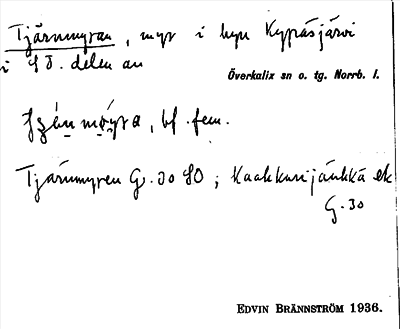 Tjärnmyran, myr i byn Kypäsjärvi
i SO. delen av
Överkalix sn o. tg. Norrb. l.
bf. fem.
Tjärnmyren G. 30 SO; Kaakkurijänkkä ek
G. 30
EDVIN BRÄNNSTRÖM 1936.